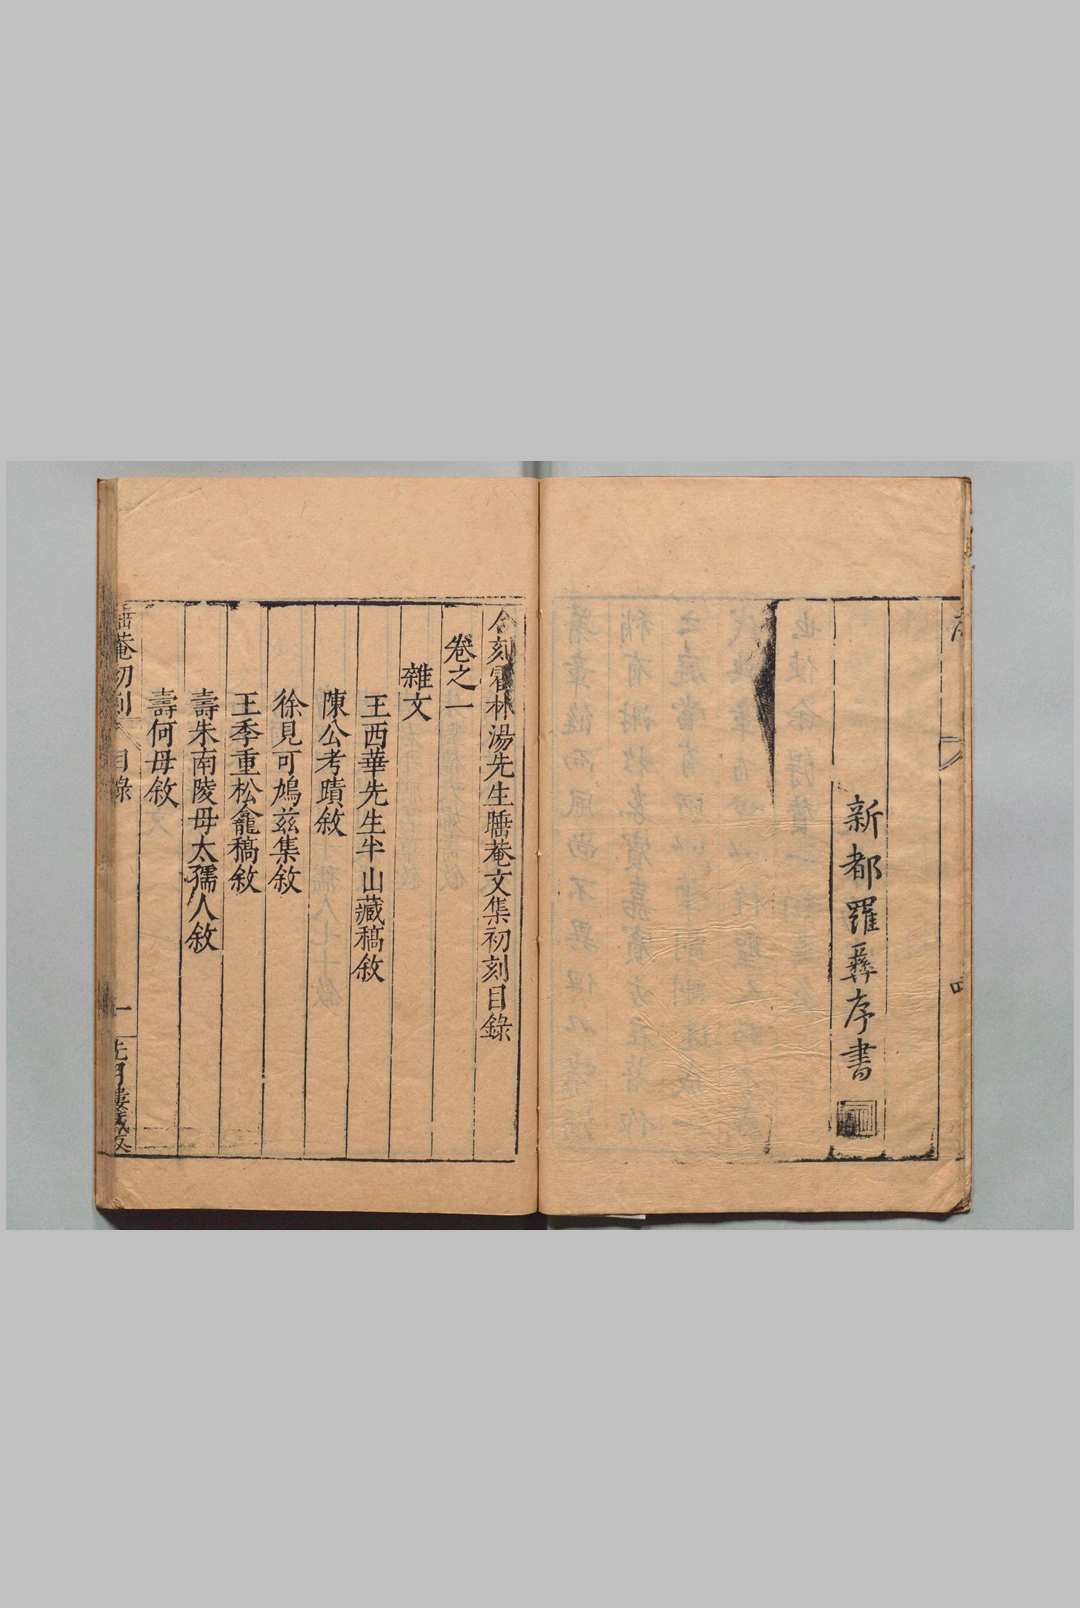 新都羅彝序書
今刻霍林湯先生睡菴文集初刻目錄
卷之一
雜文
王西華先生半山藏稿敘
陳公考蹟敘
徐見可鳩茲集敘
王季重松龕稿敘
壽朱南陵母太孺人敘
壽何母敘
菴初刻
目錄
一